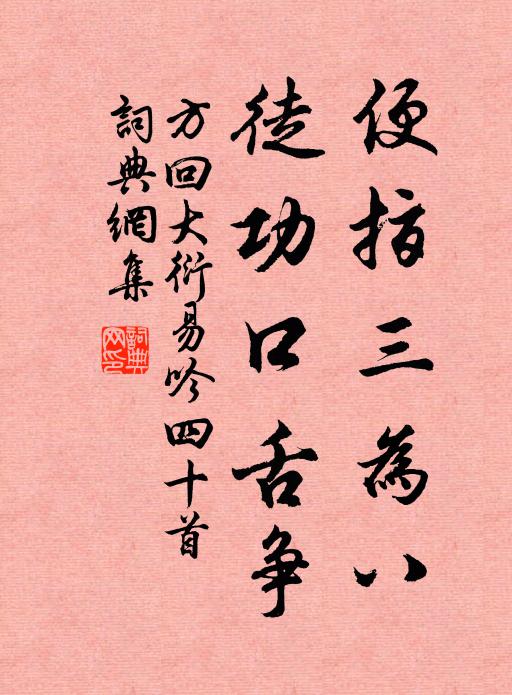 便指三為八
徒功口舌争
方回大衍易吟四十首
詞典網集
詞典網印